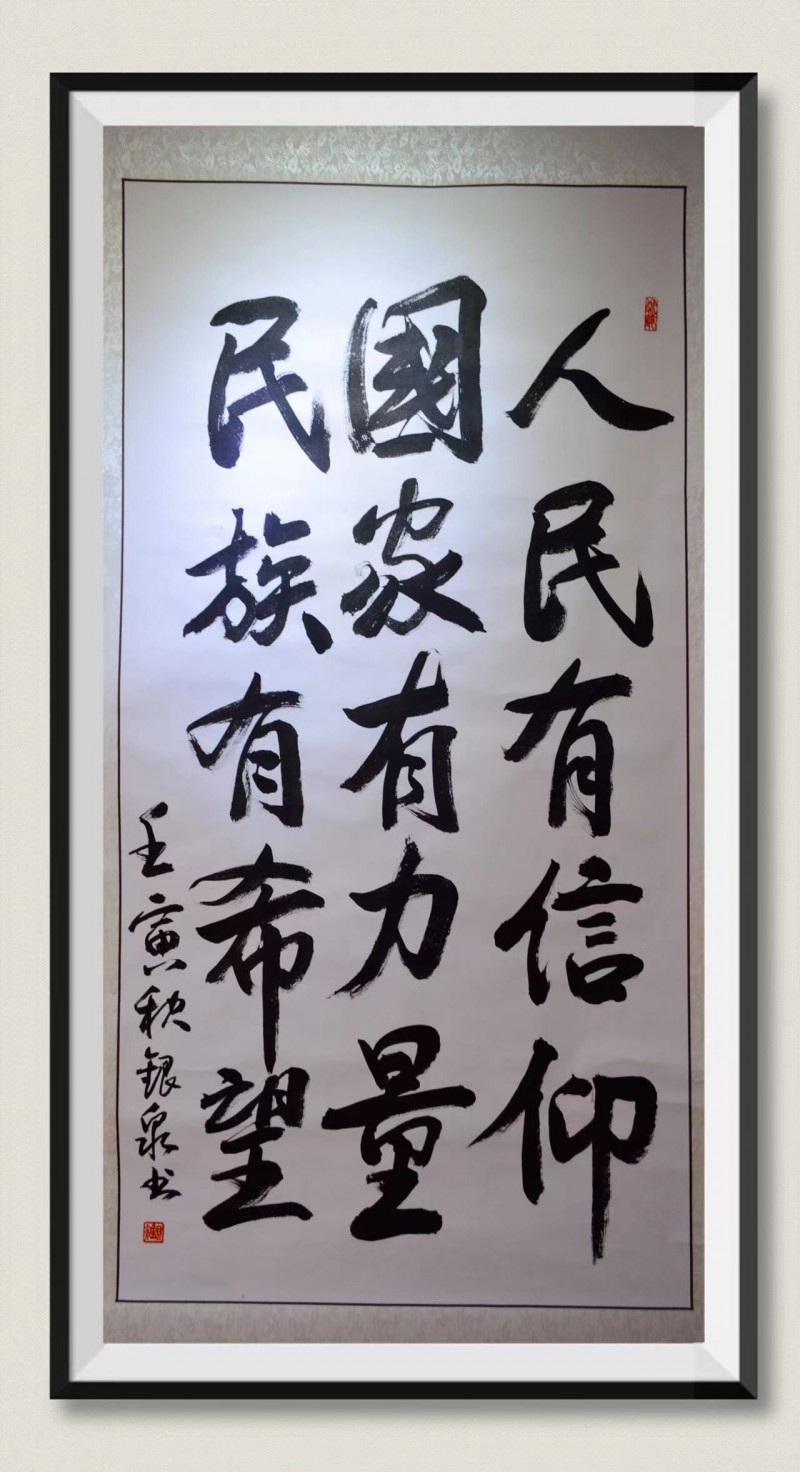 人民有信仰
國家有力量
民族有希望
壬寅秋银泉书